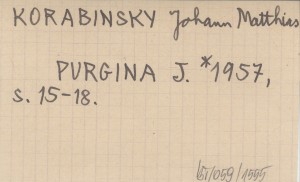 KORABINSKY Johann Matthias
PURGINA J. *1957,
s. 15-18.